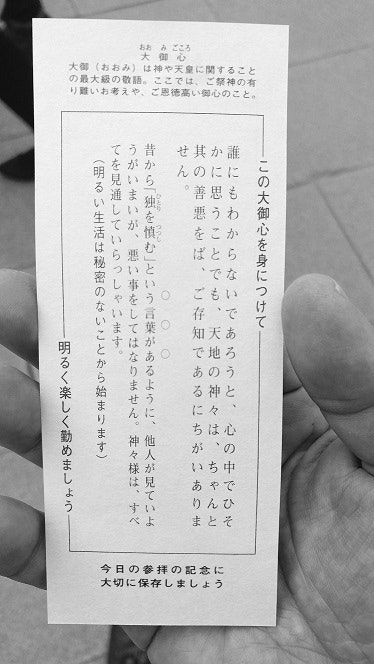 おお み ごころ
大御心
大御（おおみ）は神や天皇に関すること
の最大級の敬語。ここでは、ご祭神の有
り難いお考えや、ご恩徳高い御心のこと。
この大御心を身につけて
誰にもわからないであろうと、心の中でひそ
かに思うことでも、天地の神々は、ちゃんと
其の善悪をば、ご存知であるにちがいありま
せん。
○ ○ ○
昔から「独を慎む」という言葉があるように、他人が見ていよ
ひとり つつし
うがいまいが、悪い事をしてはなりません。神々様は、すべ
てを見通していらっしゃいます。
（明るい生活は秘密のないことから始まります）
明るく楽しく勤めましょう
今日の参拝の記念に
大切に保存しましょう